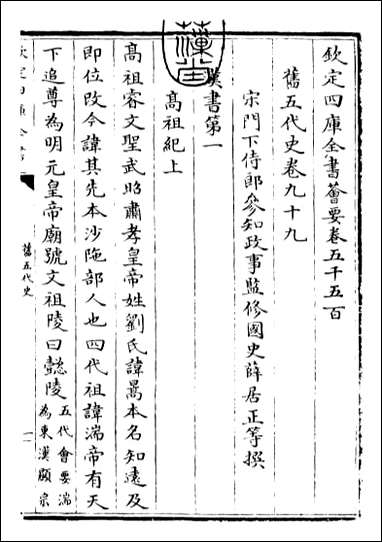 欽定四庫全書薈要卷五千五百
舊五代史卷九十九
宋門下侍郎參知政事監修國史薛居正等撰
漢書第一
高祖紀上
高祖睿文聖武昭肅孝皇帝姓劉氏諱暠本名知遠及
即位改今諱其先本沙陁部人也四代祖諱湍帝有天
下追尊為明元皇帝廟號文祖陵曰懿陵五代會要湍
為東漢顯宗
欽定四庫全書
舊五代史
一